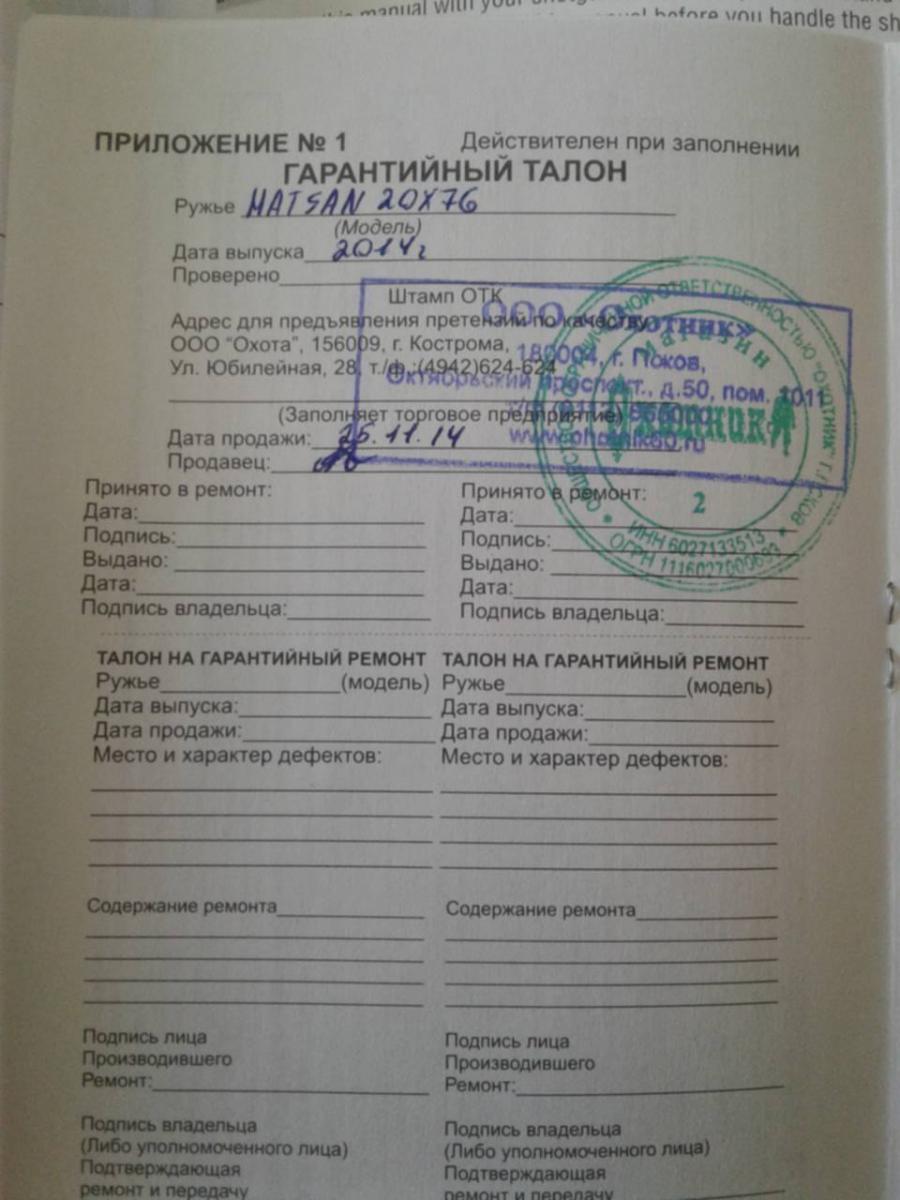 manual with your
before you handle the sh
ПРИЛОЖЕНИЕ № 1 Действителен при заполнении
ГАРАНТИЙНЫЙ ТАЛОН
Ружье HATSAN 20X76
(Модель)
Дата выпуска 2014г
Проверено
Штамп ОТК
ООО «Охотник»
Адрес для предъявления претензий по качеству
ООО "Охота", 156009, г. Кострома,
180004, г. Псков,
Ул. Юбилейная, 28, т/ф.:(4942)624-624
Октябрьский проспект., д.50, пом. 1011
(Заполняет торговое предприятие)
Дата продажи: 25.11.14
www.ohotnik60.ru
Продавец:
ОБЩЕСТВО С ОГРАНИЧЕННОЙ ОТВЕТСТВЕННОСТЬЮ "ОХОТНИК" Г.ПСКОВ
Магазин
Охотник
2
ИНН 6027133513
ОГРН
Принято в ремонт: Принято в ремонт:
Дата: Дата:
Подпись: Подпись:
Выдано: Выдано:
Дата: Дата:
Подпись владельца: Подпись владельца:
ТАЛОН НА ГАРАНТИЙНЫЙ РЕМОНТ ТАЛОН НА ГАРАНТИЙНЫЙ РЕМОНТ
Ружье (модель) Ружье (модель)
Дата выпуска: Дата выпуска:
Дата продажи: Дата продажи:
Место и характер дефектов: Место и характер дефектов:
Содержание ремонта Содержание ремонта
Подпись лица Подпись лица
Производившего Производившего
Ремонт: Ремонт:
Подпись владельца Подпись владельца
(Либо уполномоченного лица) (Либо уполномоченного лица)
Подтверждающая Подтверждающая
ремонт и передачу ремонт и передачу